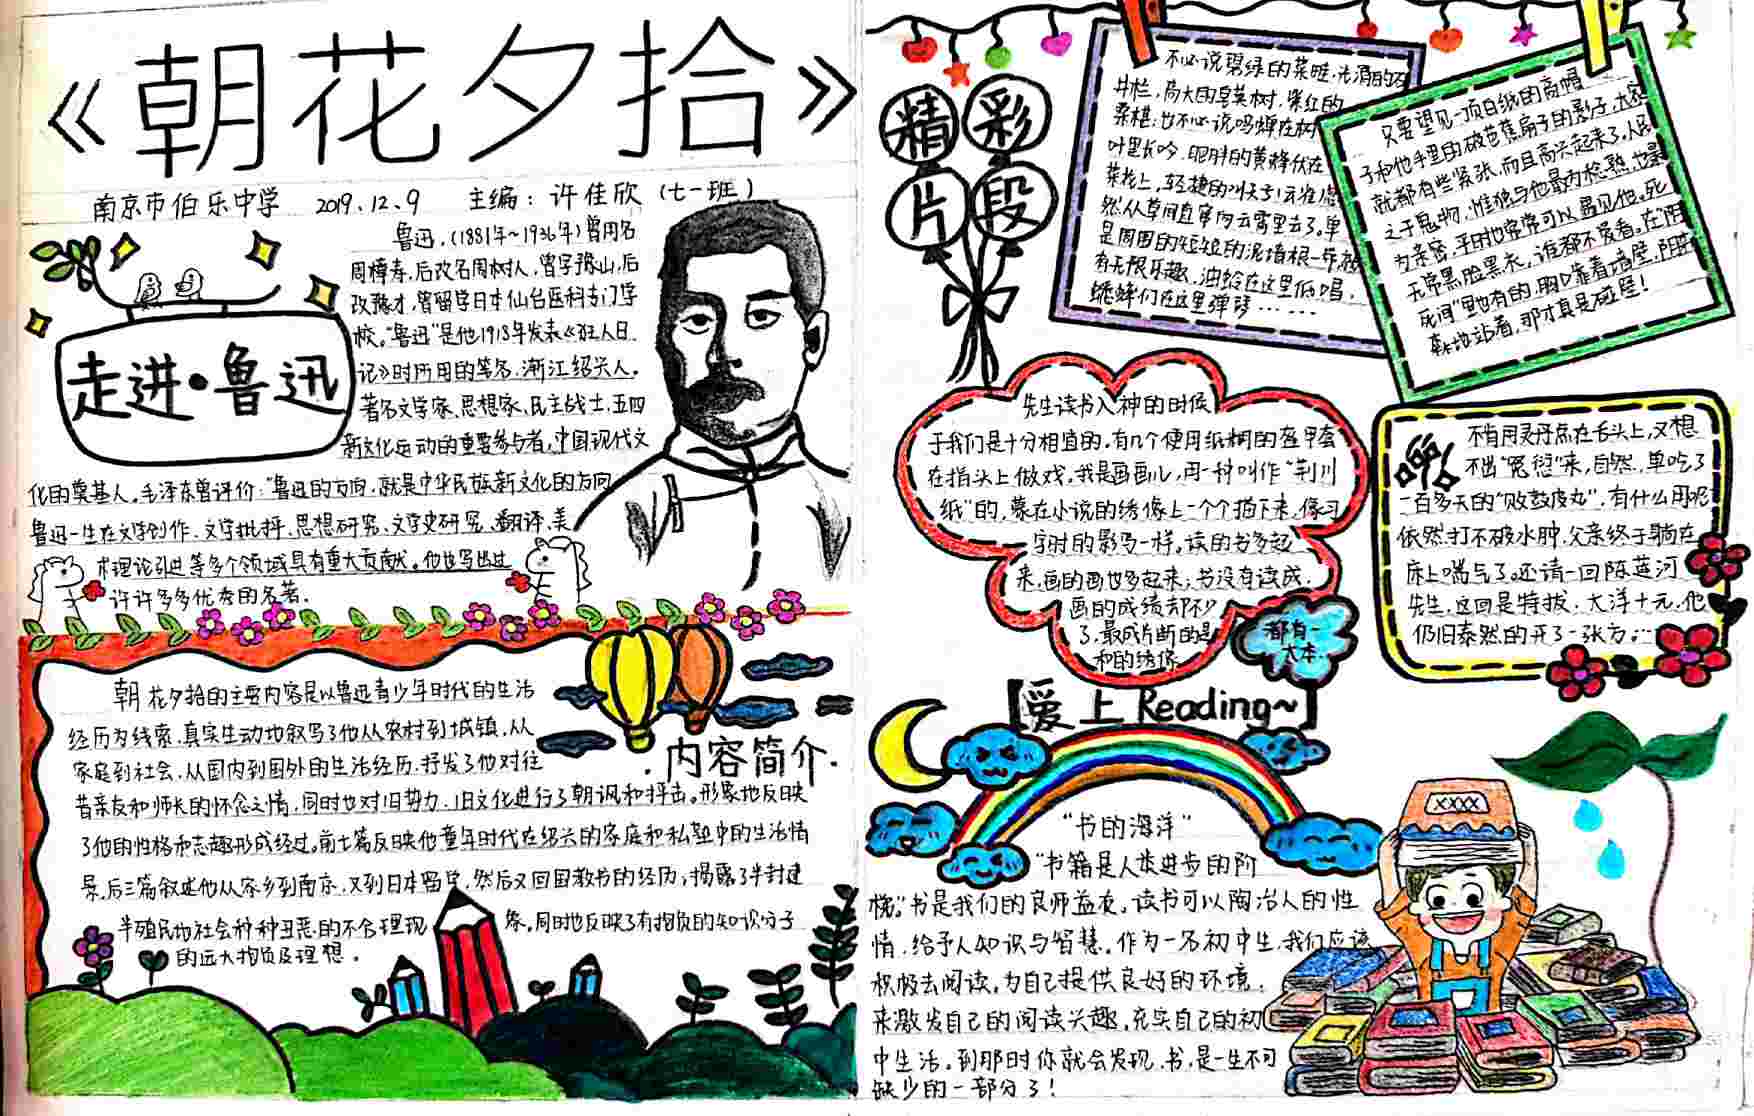 《朝花夕拾》
南京市伯乐中学 2019.12.9 主编：许佳欣（七一班）
走进·鲁迅
鲁迅，(1881年~1936年)曾用名
周樟寿，后改名周树人，曾字豫山，后
改豫才，曾留学日本仙台医科专门学
校。"鲁迅"是他1918年发表《狂人日
记》时所用的笔名，浙江绍兴人。
著名文学家、思想家，民主战士，五四
新文化运动的重要参与者，中国现代文
化的奠基人。毛泽东曾评价："鲁迅的方向，就是中华民族新文化的方向
鲁迅一生在文学创作、文学批评、思想研究、文学史研究、翻译、美
术理论引进等多个领域具有重大贡献。他也写出过
许许多多优秀的名著。
内容简介.
朝花夕拾的主要内容是以鲁迅青少年时代的生活
经历为线索，真实生动地叙写了他从农村到城镇，从
家庭到社会，从国内到国外的生活经历，抒发了他对往
昔亲友和师长的怀念之情，同时也对旧势力、旧文化进行了嘲讽和抨击。形象地反映
了他的性格和志趣形成经过。前七篇反映他童年时代在绍兴的家庭和私塾中的生活情
景，后三篇叙述他从家乡到南京，又到日本留学，然后又回国教书的经历；揭露了半封建
半殖民地社会种种丑恶的不合理现象。同时也反映了有抱负的知识分子
的远大抱负及理想。
精彩片段
不必说碧绿的菜畦，光滑的石
井栏，高大的皂荚树，紫红的
桑椹；也不必说鸣蝉在树
叶里长吟，肥胖的黄蜂伏在
菜花上，轻捷的叫天子(云雀)忽
然从草间直窜向云霄里去了。单
是周围的短短的泥墙根一带，就
有无限乐趣。油蛉在这里低唱，
蟋蟀们在这里弹琴……
只要望见一顶白纸的高帽
子和他手里的破芭蕉扇子的影子，大家
就都有些紧张，而且高兴起来了。人民
之于鬼物，惟独与他最为稔熟，也最
为亲密，平时也常常可以遇见他。死
无常黑脸黑衣，谁都不爱看。在"阴
死间"里也有的，胸口靠着墙壁，阴森
森地站着，那才真是碰壁！
先生读书入神的时候
于我们是十分相宜的。有几个便用纸糊的盔甲套
在指头上做戏。我是画画儿，用一种叫作"荆川
纸"的，蒙在小说的绣像上一个个描下来，像习
字时的影写一样。读的书多起
来，画的画也多起来；书没有读成，
画的成绩却不少
了，最成片断的是
和的绣像
都有一
大本
不肯用灵丹点在舌头上，又想
不出"冤愆"来，自然，单吃了
一百多天的"败鼓皮丸"，有什么用呢
依然打不破水肿，父亲终于躺在
床上喘气了。还请一回陈莲河
先生，这回是特拔，大洋十元。他
仍旧泰然的开了一张方…
【爱上Reading~】
"书的海洋"
"书籍是人类进步的阶
梯。"书是我们的良师益友，读书可以陶冶人的性
情，给予人知识与智慧。作为一名初中生，我们应该
积极去阅读，为自己提供良好的环境，
来激发自己的阅读兴趣，充实自己的初
中生活。到那时你就会发现，书，是一生不可
缺少的一部分了！
XXXX